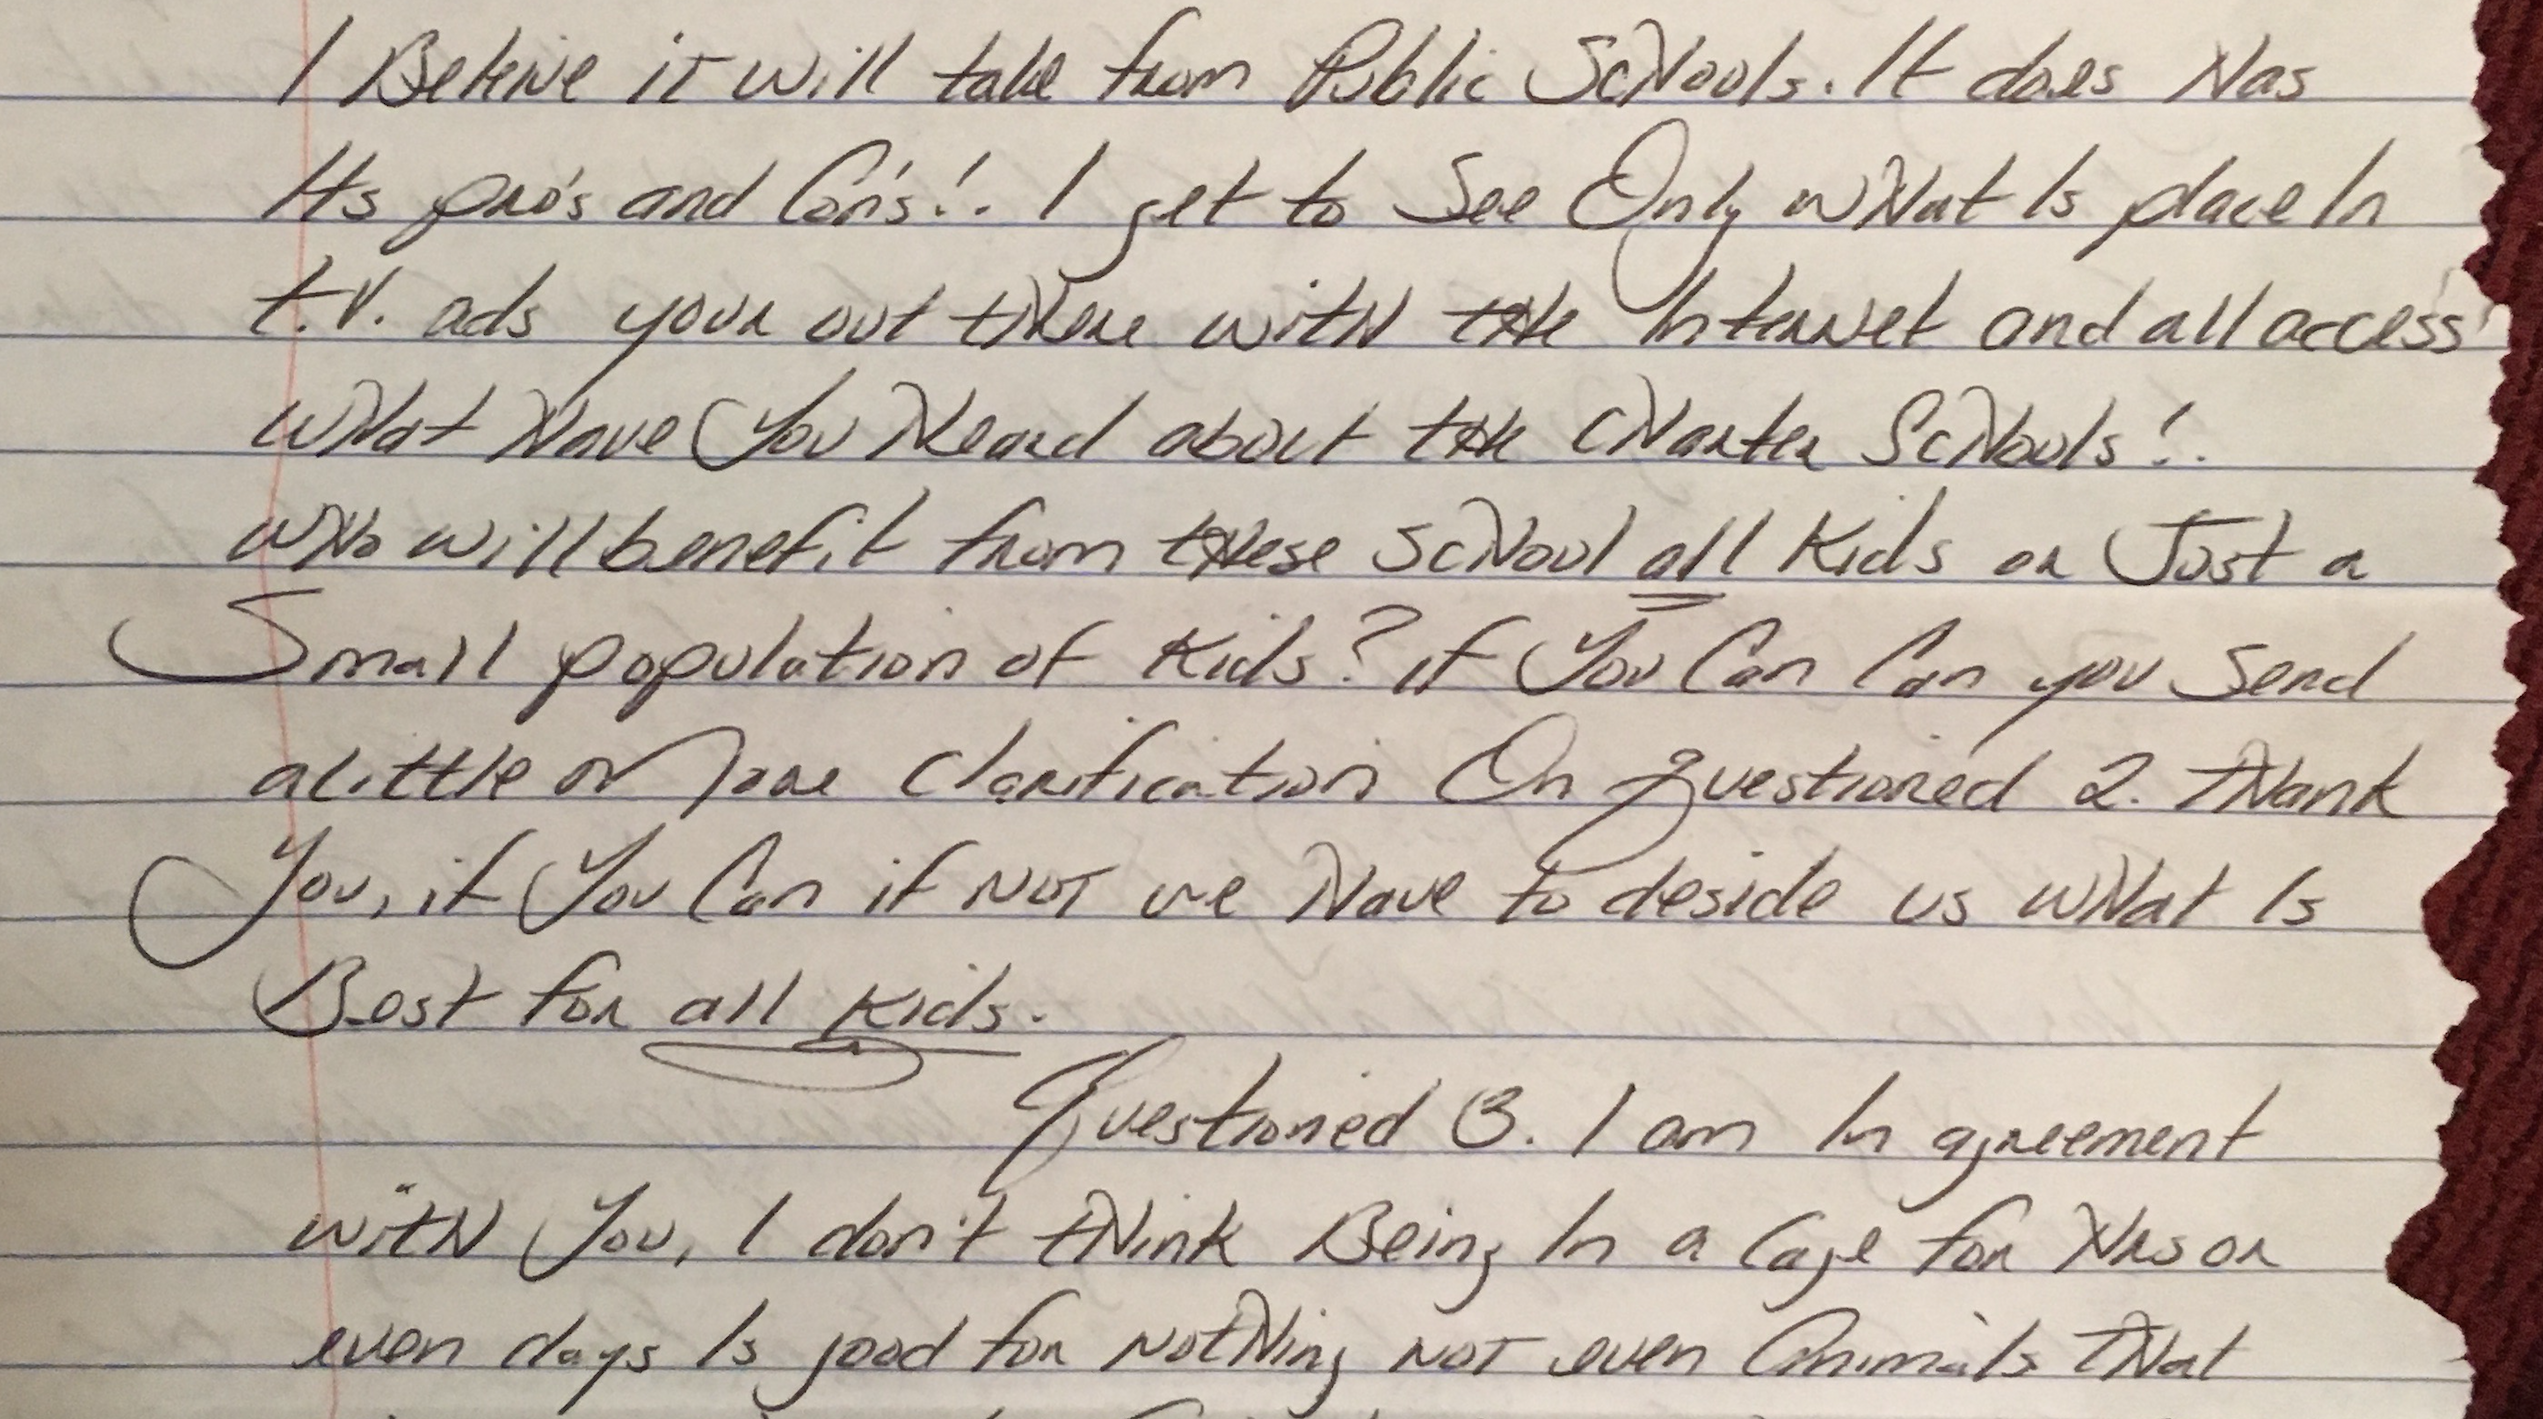 I Beleive it will take from Public Schools. It does has
Its pro's and Con's!. I get to See Only what Is place In
t.v. ads your out there with the Internet and all access!
what have You Heard about the Charter Schools!.
who will benefit from these school all Kids or Just a
Small population of Kids? if You Can Can you send
alittle or More Clarification On questioned 2. thank
You, if You Can if NOT we have to deside us what Is
Best for all Kids.
Questioned 3. I am In agreement
with You, I don't think Being In a Cage for Hrs or
even days Is good for nothing NOT even Animals that